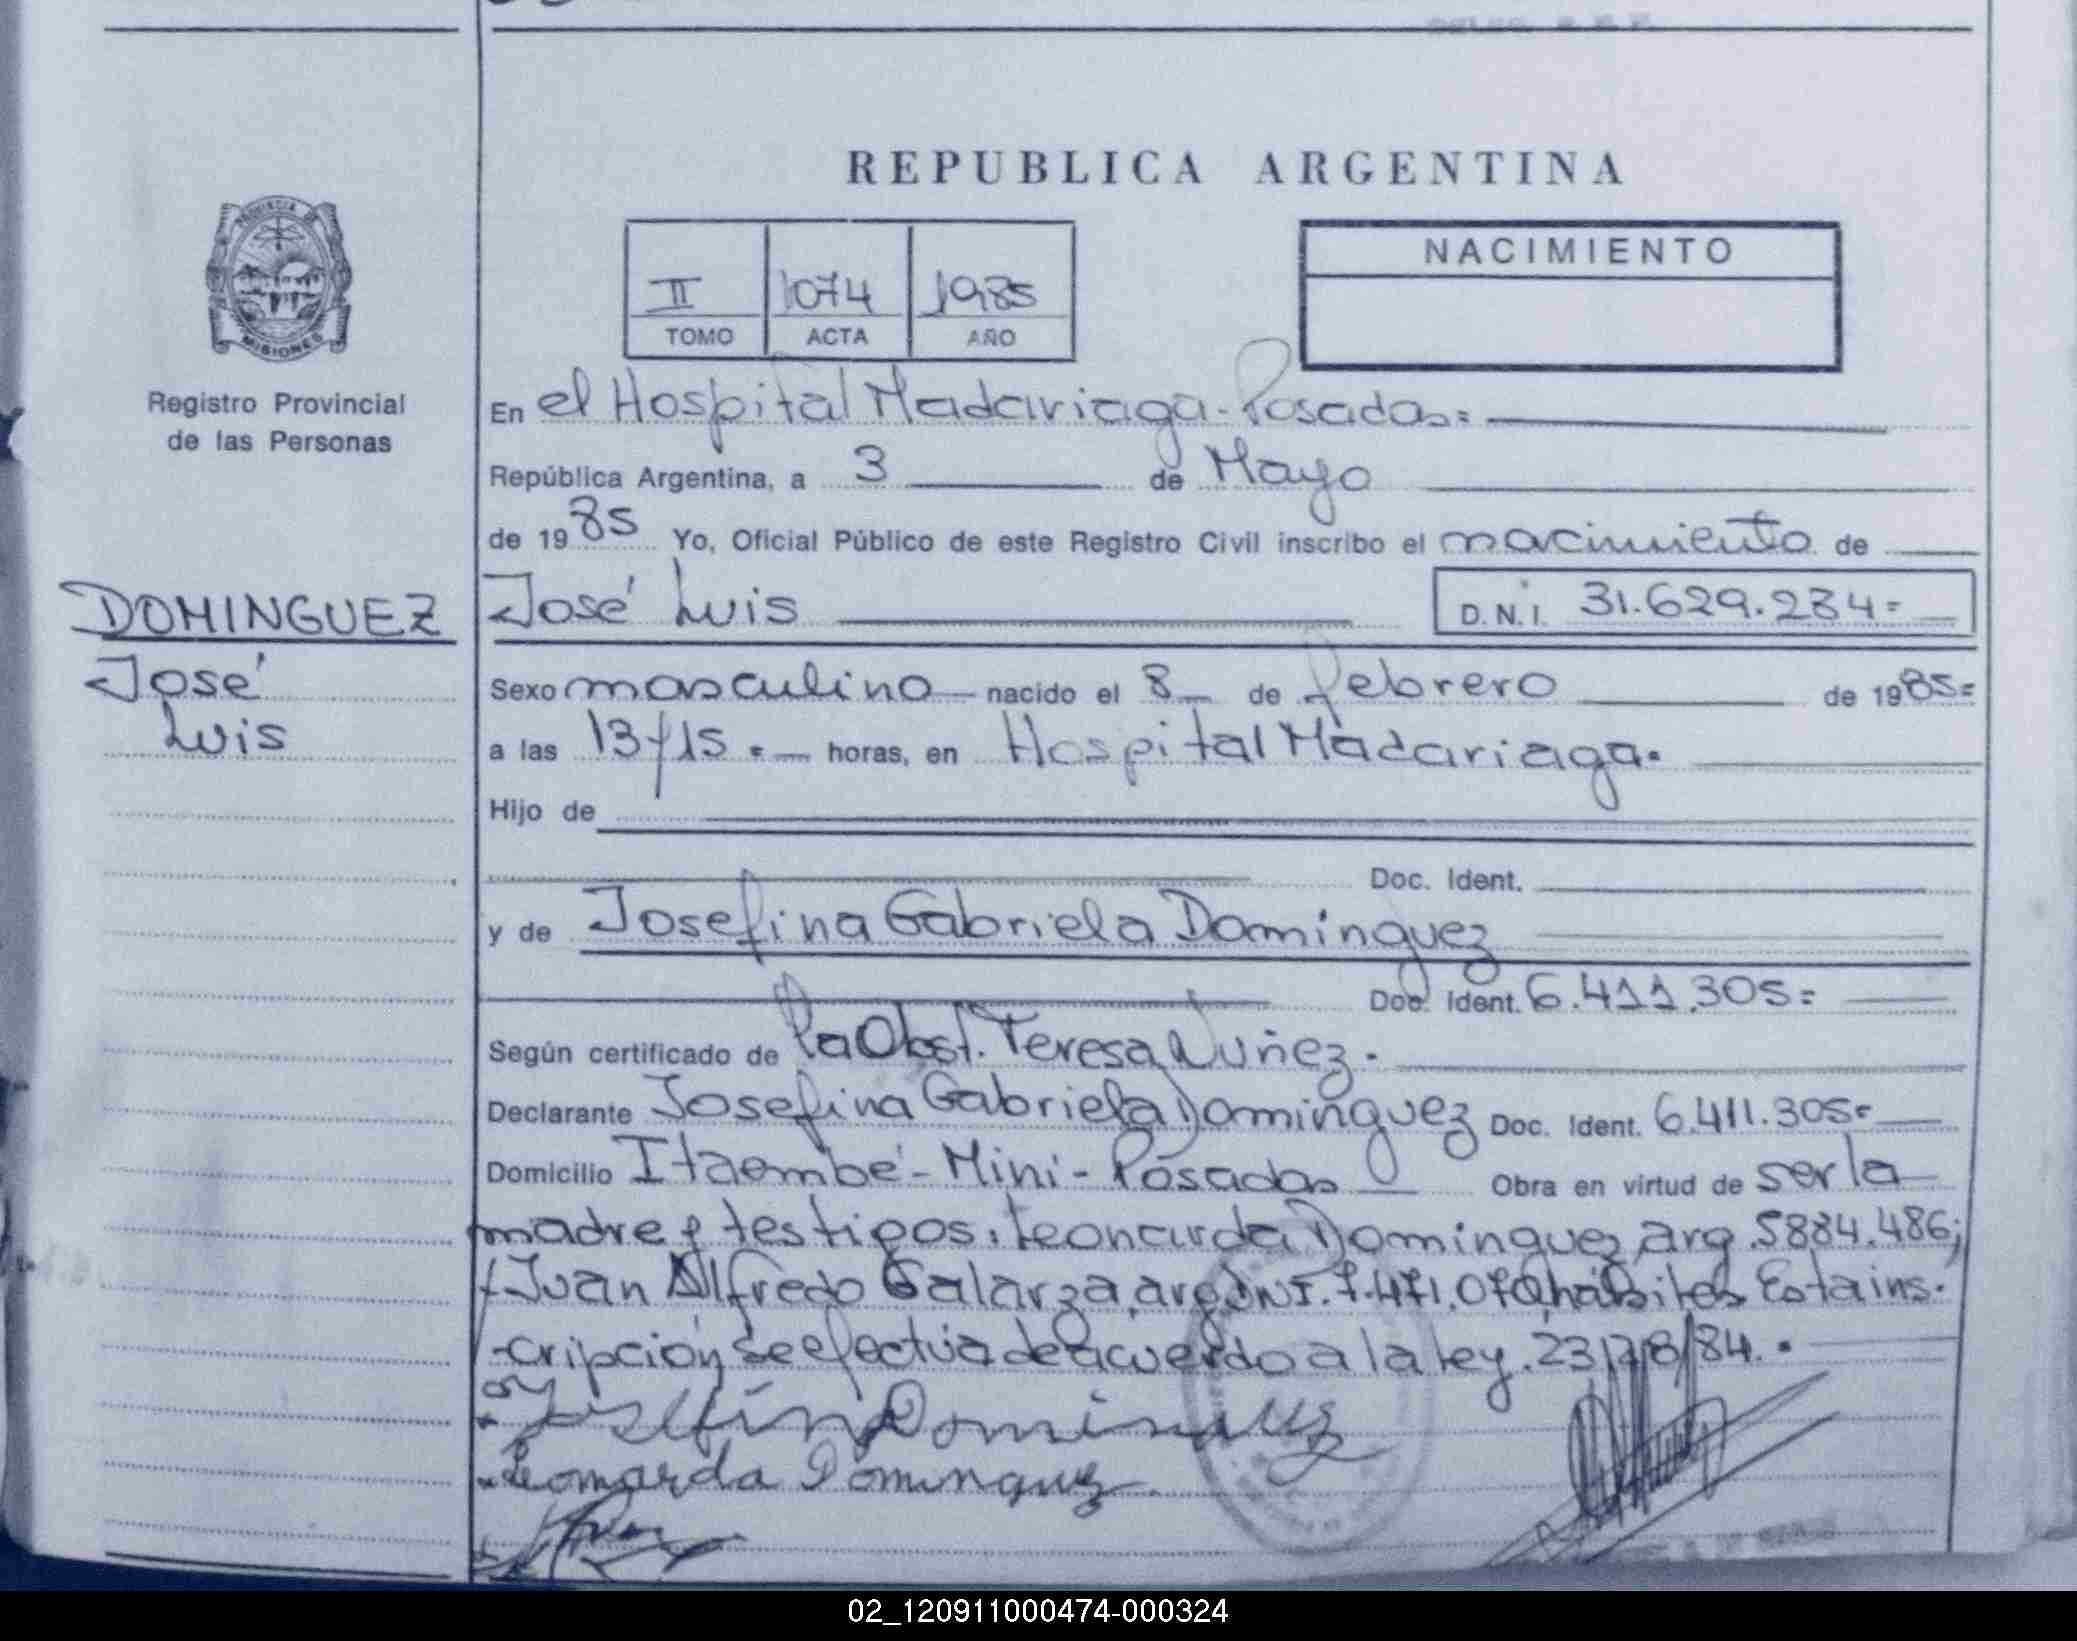 REPUBLICA ARGENTINA
PROVINCIA DE
MISIONES
Registro Provincial
de las Personas
II 1074 1985
TOMO ACTA AÑO
NACIMIENTO
En el Hospital Madariaga - Posadas=
República Argentina, a 3 de Mayo
de 1985 Yo, Oficial Público de este Registro Civil inscribo el nacimiento de
DOMINGUEZ
José
Luis
José Luis D.N.I. 31.629.234=
Sexo masculino nacido el 8 de febrero de 1985=
a las 13/15 = horas, en Hospital Madariaga.
Hijo de
Doc. Ident.
y de Josefina Gabriela Dominguez
Doc. Ident. 6.411.305=
Según certificado de la Obst. Teresa Nuñez.
Declarante Josefina Gabriela Dominguez Doc. Ident. 6.411.305=
Domicilio Itaembé - Mini - Posadas Obra en virtud de ser la
madre y testigos: Leonarda Dominguez, arg. 5884.486;
y Juan Alfredo Galarza, arg. DNI. 7.471.070, hábiles Esta ins-
cripción se efectúa de acuerdo a la ley
Josefina Dominguez
Leonarda Dominguez
02_120911000474-000324